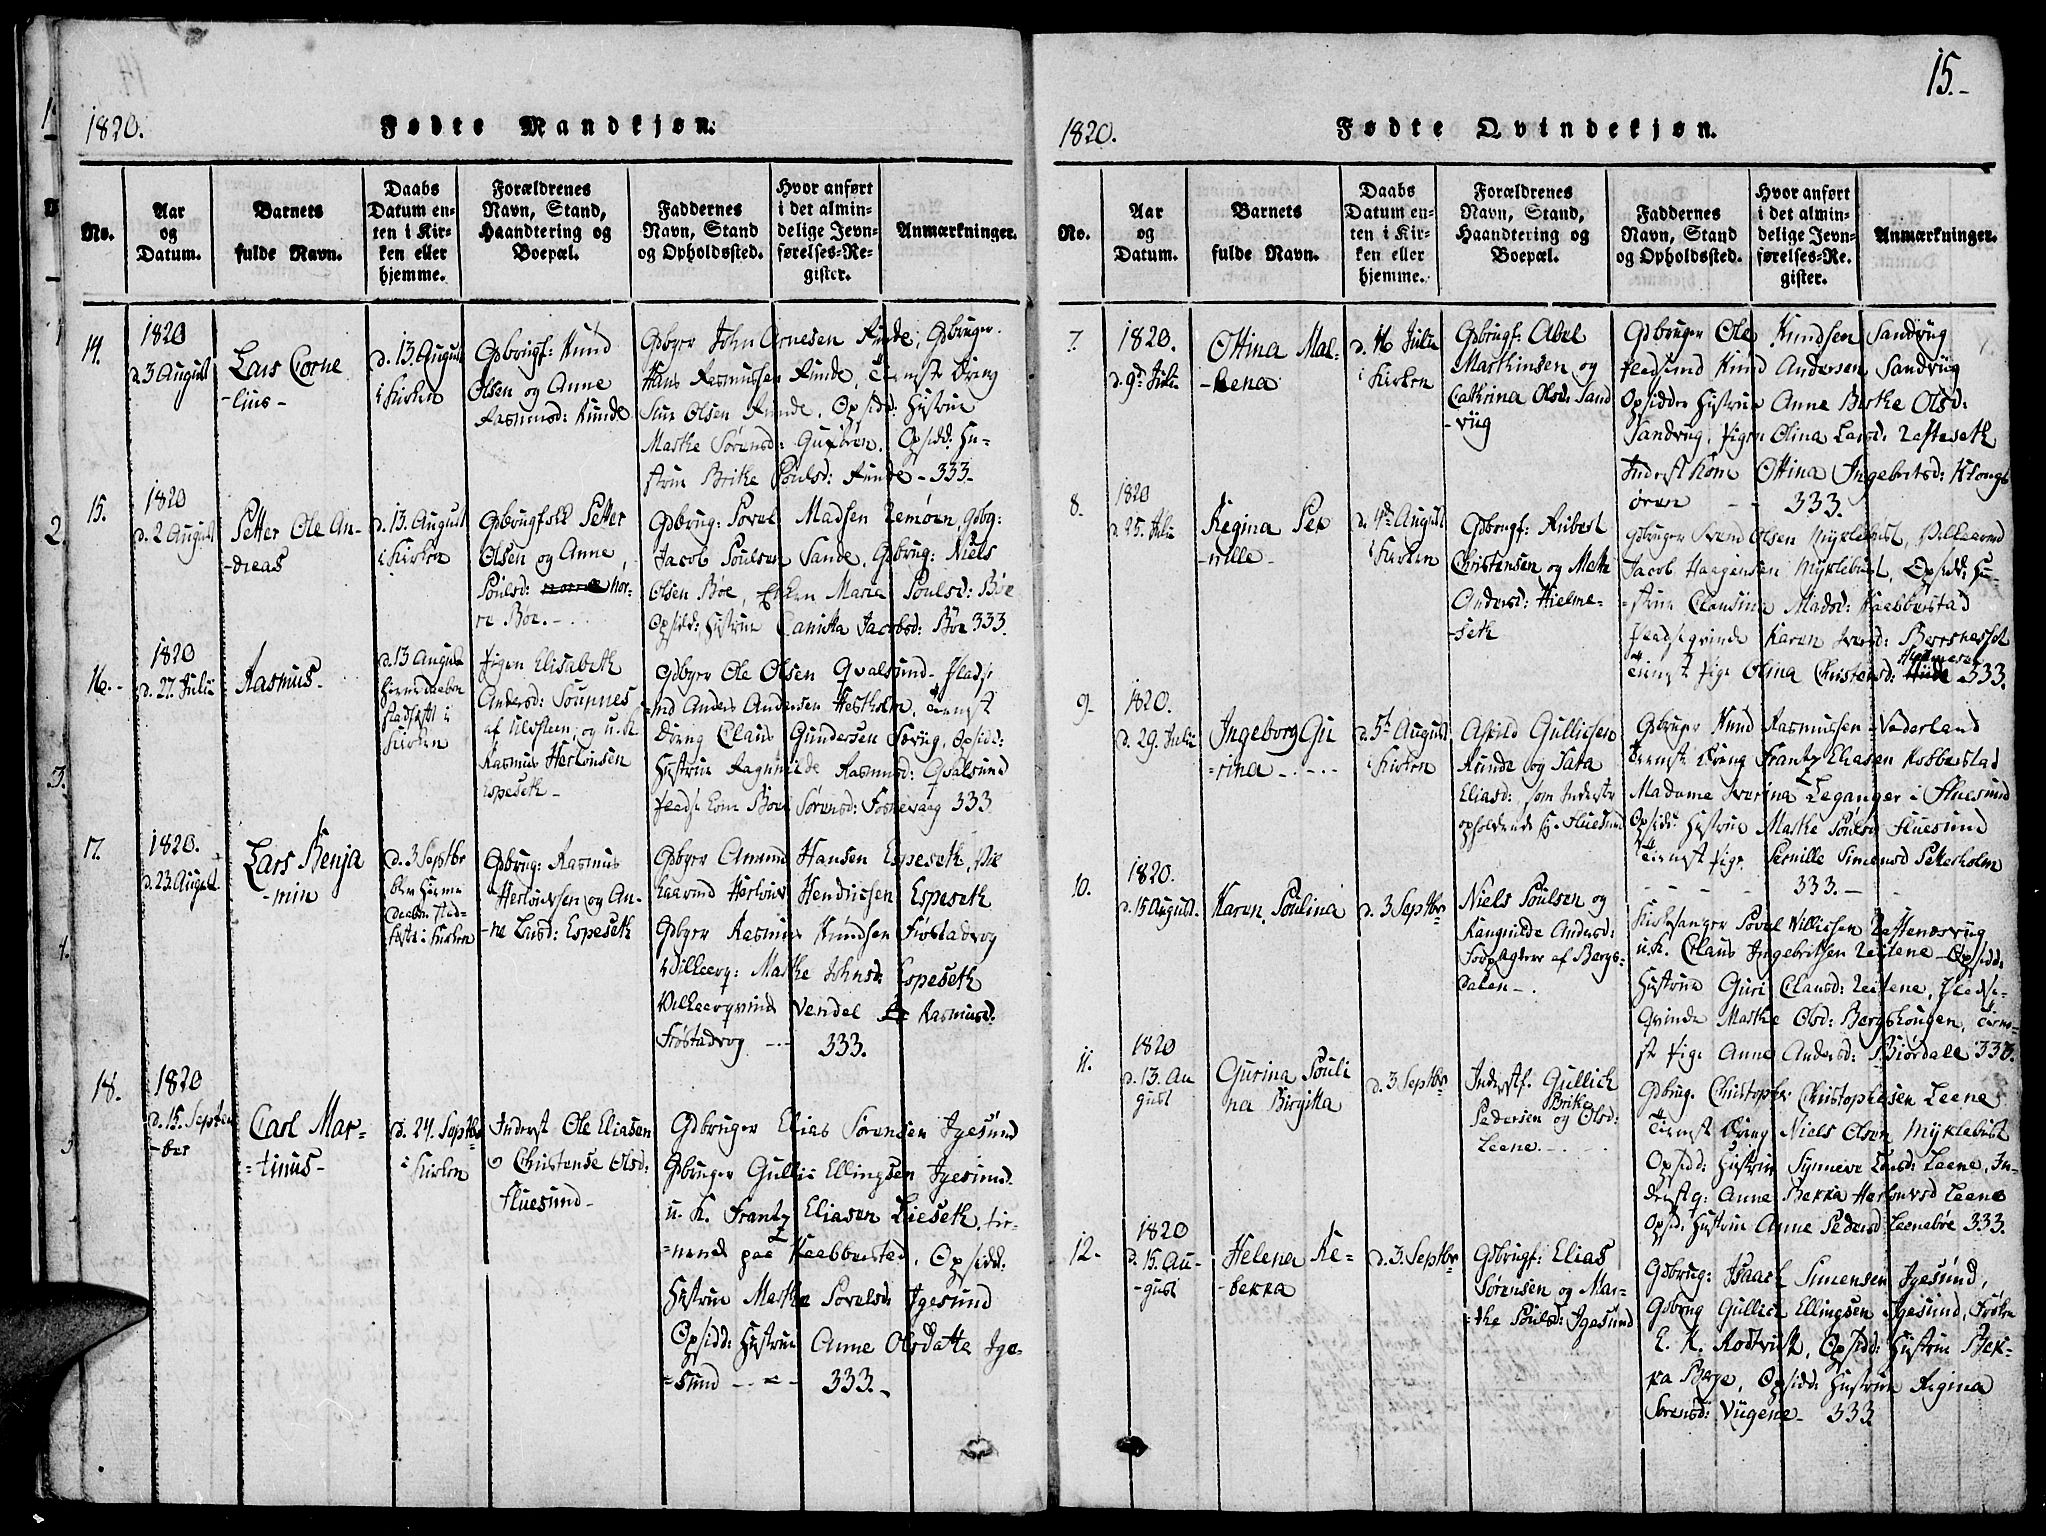 15.-
1820.
Fødte Mandkjøn.
No.
Aar
og
Datum.
Barnets
fulde Navn.
Daabs
Datum en-
ten i Kir-
ken eller
hjemme.
Forældrenes
Navn, Stand,
Haandtering og
Boepæl.
Faddernes
Navn, Stand
og Opholdssted.
Hvor anført
i det almin-
delige Jevn-
førelses-Re-
gister.
Anmærkninger.
14.
1820
d. 3 August
Lars Corne
-lius-
d. 13. August
i Kirken
Gdbrugf: Knud
Olsen og Anne
Rasmusd: Runde
Gdbger John Arnesen Runde, Gdbruger
Hans Rasmussen Runde, Tienst Dreng
Olsen Runde, Opsidd: Hustrue
Marthe Sørensd: Opsidd: Hu-
strue Brite Poulsd: Runde - 333-
15.
1820
d. 2 August
Petter Ole An-
-dreas
d. 13. August
i Kirken
Gdbrugfolk Petter
Olsen og Anne
Poulsd: Nor-
re Bøe.-
Gdbrug: Povel Madsen Remøen, Gdbg:
Jacob Poulsen Sande, Gdbrug: Niels
Olsen Bøe, Enken Maria Poulsd: Bøe
Opsidd: Hustrue Jacobsd: Bøe 333.
16.-
1820
d. 27. Julii
Rasmus-
d. 13 August
hjemmedøbt
stadfæstet i
Kirken
Pigen Elisabeth
Andersd:
af Ulvsteen, og u: K
Rasmus Herlovsen
Espeseth-
Gdbger Ole Olsen Qvalsund- Pladsm
Anders Andersen Hestholm, Tienst
Dreng Claus Gundersen Opsidd:
Hustrue Ragnilde Rasmusd: Qvalsund
Pladsekone Sørensd: Fosnevaag 333
17.
1820.
d. 23. August
Lars Benja
-min
d. 3 Septbr
blev hjemme
døbt stad-
fæstet i Kirken
Gdbrug: Rasmus
Herlovsen og An-
-ne Larsd: Espeseth
Gdbger Amund Hansen Espeseth, Vil
kaarmd Herlovs Hendrichsen Espeseth
Gdbger Rasmus Knudsen Frøstadvog
Vilkaarq: Marthe Johnsd: Espeseth
Vilkaarqvind Vendel Rasmusd:
Frøstadvog -.- 333.
18.
1820
d. 15. Septem
-ber
Carl Mar-
=tinus-
d. 24. Septbr
i Kirken
Inderst Ole Eliasen
o Christense Olsd:
Fluesund-
Gdbruger Elias Sørensen Igesund
Gdbruger Gullie Ellingsen Igesund
u. K. Frantz Eliasen Lieseth, tie-
=nende paa Kaabbestad, Opsidd:
Hustrue Marthe Povelsd: Igesund
Opsidd: Hustrue Anne Olsdatter Ige-
=sund - - - 333.-
1820.
Fødte Qvindekjøn.
No.
Aar
og
Datum.
Barnets
fulde Navn.
Daabs
Datum en-
ten i Kir-
ken eller
hjemme.
Forældrenes
Navn, Stand,
Haandtering og
Boepæl.
Faddernes
Navn, Stand
og Opholdssted.
Hvor anført
i det almin-
delige Jevn-
førelses-Re-
gister.
Anmærkninger.
7.
1820.
d. 9de Julii
Ottina Mal-
-hena
d. 16 Julii
i Kirken
Gdbrugf: Abel
Marthinsen og
Cathrina Olsd: Sand
-vüg
Gdbruger Ole Knudsen Sandvüg
Pladsmd Knud Andersen Sandvüg
Opsidder Hustrue Anne Berthe Olsd:
Sandvug, Pigen Olina Larsd: Refteseth
Inderst Kone Ottina Ingebretsd: Klongs
øren - - 333.
8.
1820
d. 25. Julii
Regina Per
-nille-
d. 4de August
i Kirken
Gdbrugf: Rubert
Christensen og Mete
Andersd: Hielme-
-seth
Gdbruger Svend Olsen Myklebust, Vilkaarmd
Jacob Haagensen Myklebust, Opsidd: Hu-
=strue Clausina Madsd: Kaabbestad
Pladseqvinde Karen
Tienst Pige Olina Christensd: Hielmeseth 333.
9-
1820.
d. 29. Julii
Ingeborg Gu
=rina -.-.-
d. 5te August
i Kirken
Gullichsen
Runde og
Eliasd: som Inderste
opholdende sig Fluesund
Gdbruger Knud Rasmussen Vaderland
Tienst Dreng Frantz Eliasen Kobbestad
Madame Severina Leganger i Fluesund
Opsidd: Hustrue Marthe Poulsd Fluesund
Tienst Pige Pernille Simensd Peterholm
- - - - 333.-
10.
1820.
d. 15 August.
Karen Poulina
d. 3 Septbr
Niels Poulsen og
Rangnilde Andersd:
Forpagtere af Bergs-
dalen-.
Kirkesanger Povel Villesen Reftenæsvug
u. K. Claus Ingebretsen Reitene- Opsidd:
Hustrue Guri Clausd: Reitene, Pladse-
Qvinde Marthe Olsd: Bergshougen, Tien-
st Pige Anne Andersd: Biørdale 333.
11.
1820
d. 13. Au
gust
Gurina Pouli
na Birgitta
d. 3 Septbr
Inderstf. Gullich
Pedersen og Brite Olsd:
Leene.-.-
Gdbrug. Christopher Christophersen Leene
Tienst Dreng Niels Olsen Myklebust
Opsidd: Hustrue Synneve Larsd: Leene, In-
derstq: Anne Bekka Herlovsd Leene
Opsid. Hustrue Anne Pedersd Leenebøe 333.
12.-
1820
d. 15. Au-
-gust
Helena Re-
-bekka
d. 3 Septbr
Gdbrugf: Elias
Sørensen og Mar-
=the Poulsd: Igesund
Gdbrug: Isaach Simensen Igesund,
Gdbrug Gullich Ellingsen Igesund,
E. K. Opsidd: Hustrue Bek-
ka Opsidd: Hustrue Regina
Sørensd: Vügene- 333